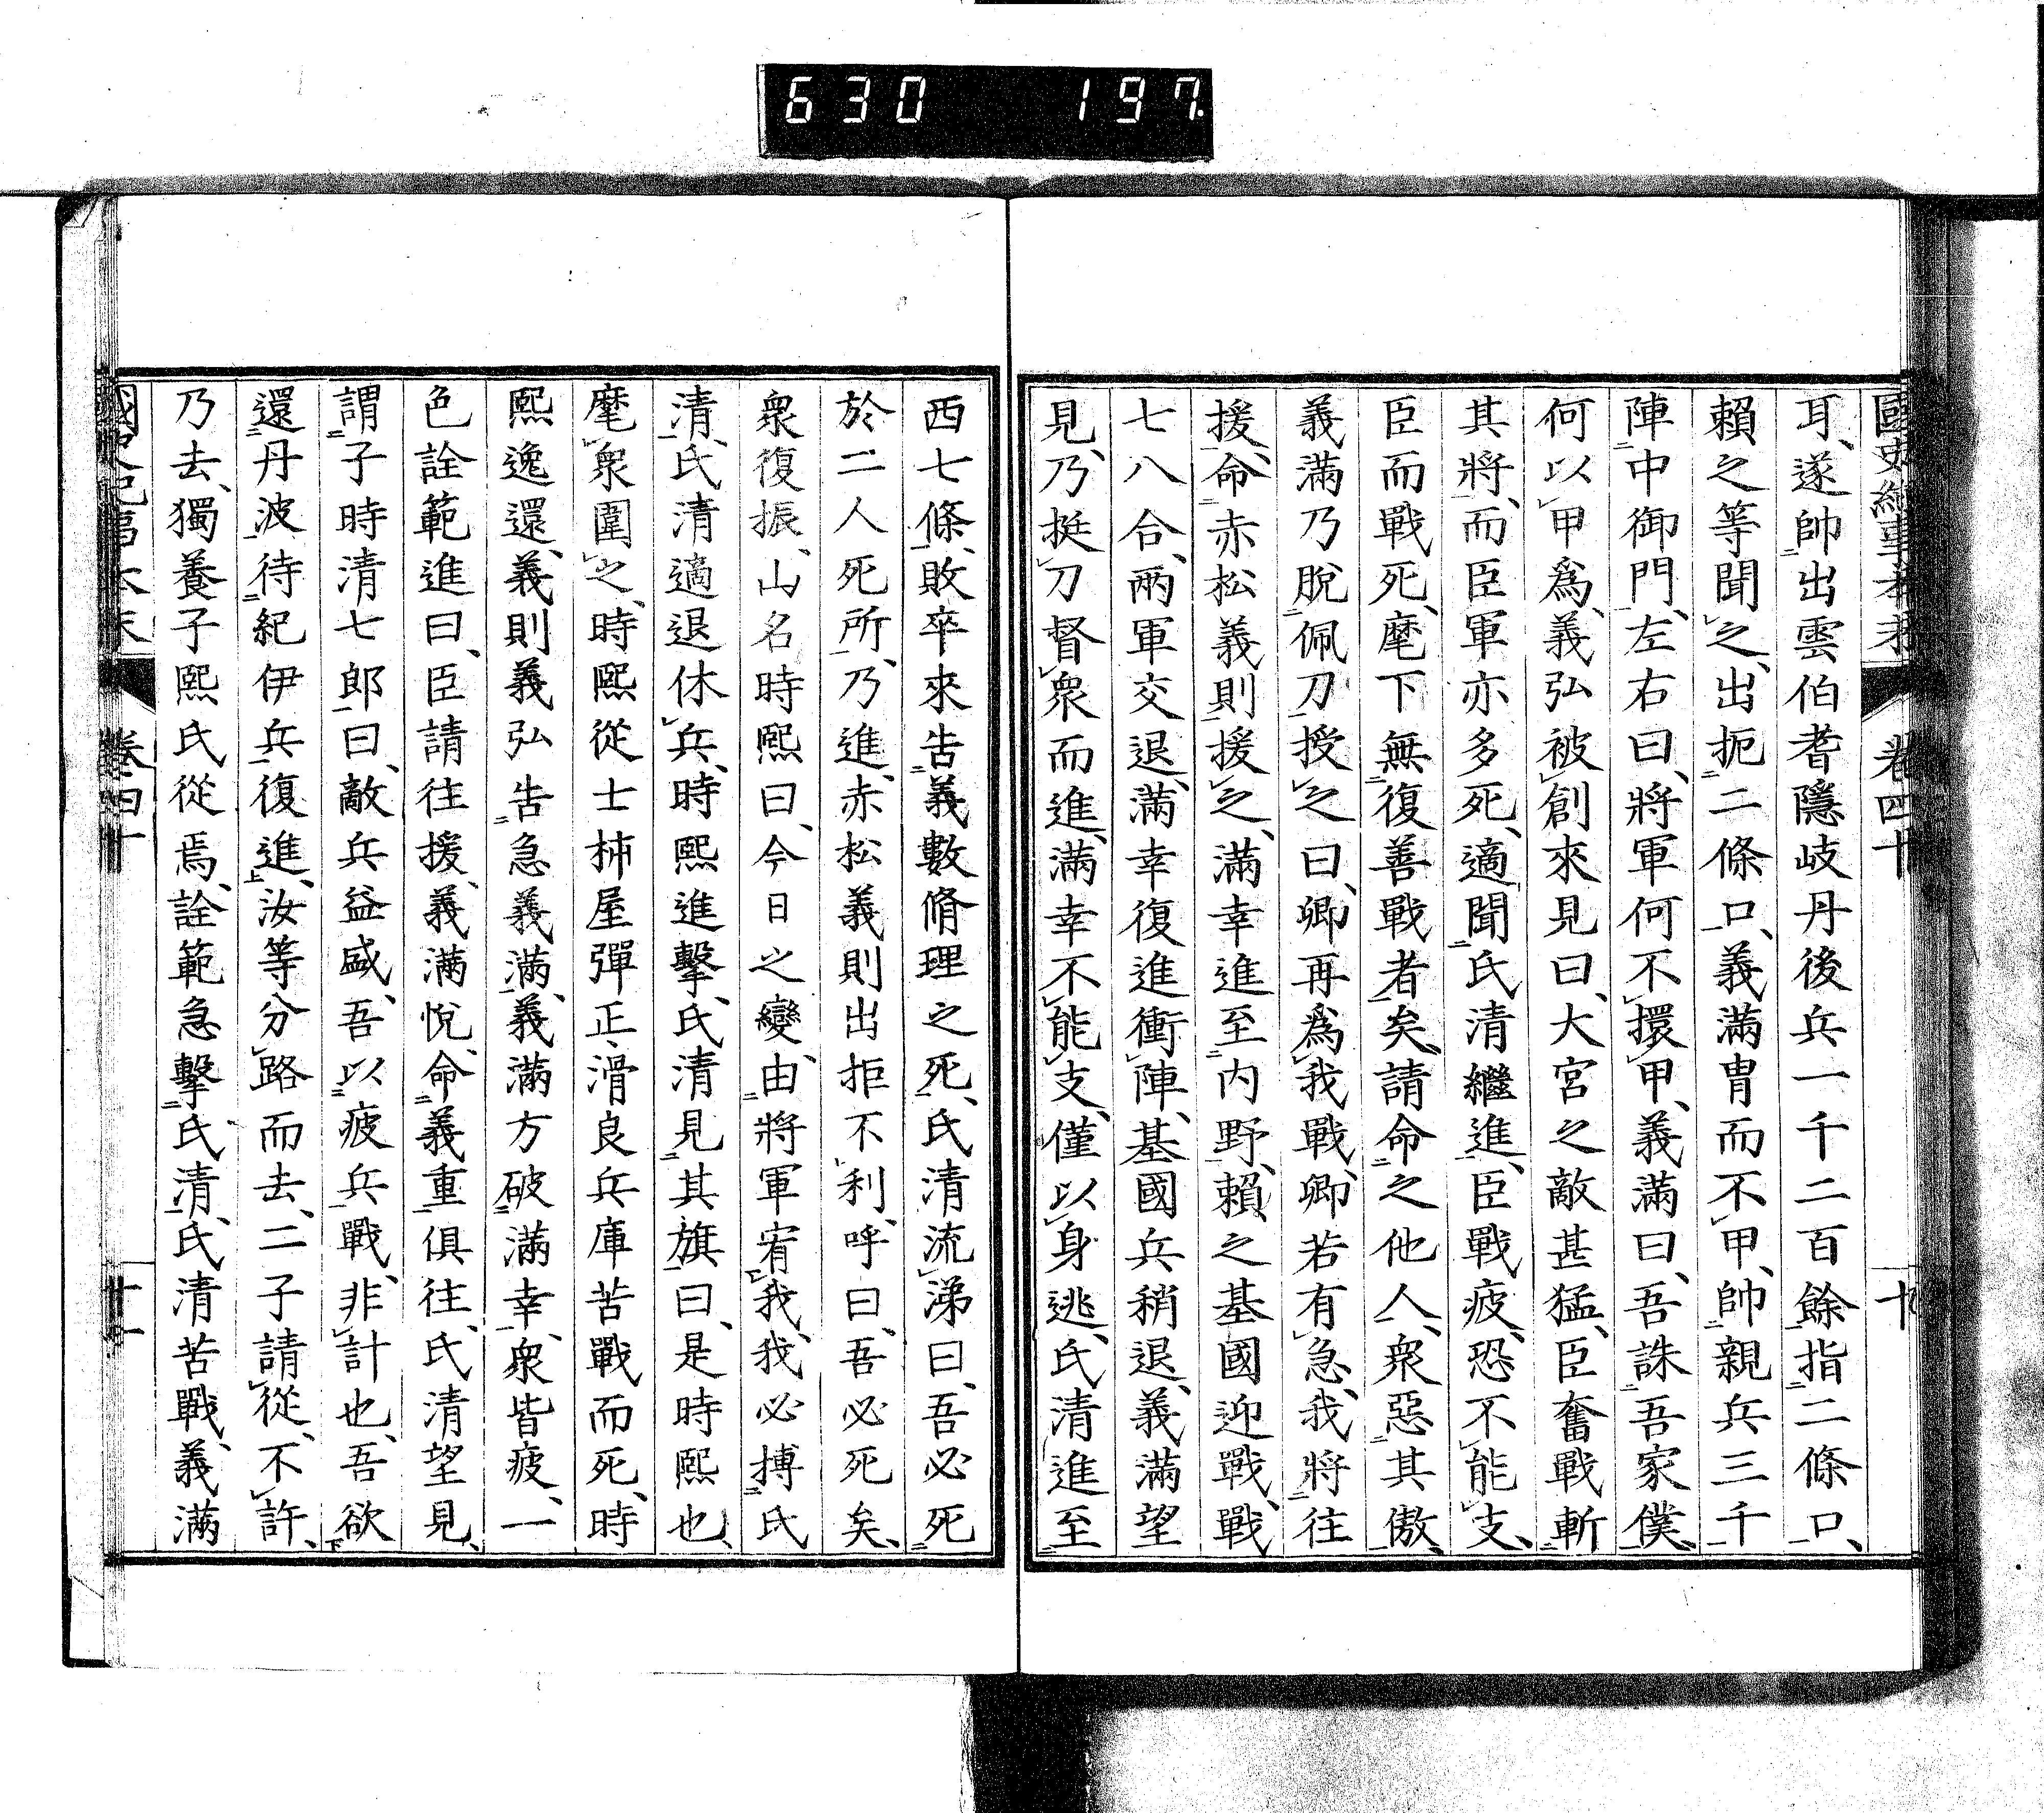 630 197
卷四十
耳、遂帥出雲伯耆隱岐丹後兵一千二百餘指二條口、
賴之等聞之、出扼二條口、義滿冑而不甲、帥親兵三千
陣中御門、左右曰、將軍何不擐甲、義滿曰、吾誅吾家僕、
何以甲爲、義弘被創來見曰、大宮之敵甚猛、臣奮戰斬
其將、而臣軍亦多死、適聞氏清繼進、臣戰疲、恐不能支、
臣而戰死、麾下無復善戰者矣、請命之他人、衆惡其傲、
義滿乃脫佩刀授之曰、卿再爲我戰、卿若有急、我將往
援、命赤松義則援之、滿幸進至內野、賴之基國迎戰、戰
七八合、兩軍交退、滿幸復進衝陣、基國兵稍退、義滿望
見、乃挺刀督衆而進、滿幸不能支、僅以身逃、氏清進至
西七條、敗卒來告義數脩理之死、氏清流涕曰、吾必死
於二人死所、乃進、赤松義則出拒不利、呼曰、吾必死矣、
衆復振、山名時熙曰、今日之變、由將軍宥我、我必搏氏
清、氏清適退休兵、時熙進擊、氏清見其旗曰、是時熙也、
麾衆圍之、時熙從士柿屋彈正滑良兵庫苦戰而死、時
熙逸還、義則義弘告急義滿、義滿方破滿幸、衆皆疲、一
色詮範進曰、臣請往援、義滿悅、命義重俱往、氏清望見、
謂子時清七郎曰、敵兵益盛、吾以疲兵戰、非計也、吾欲
還丹波待紀伊兵復進、汝等分路而去、二子請從、不許、
乃去、獨養子熙氏從焉、詮範急擊氏清、氏清苦戰、義滿
卷四十